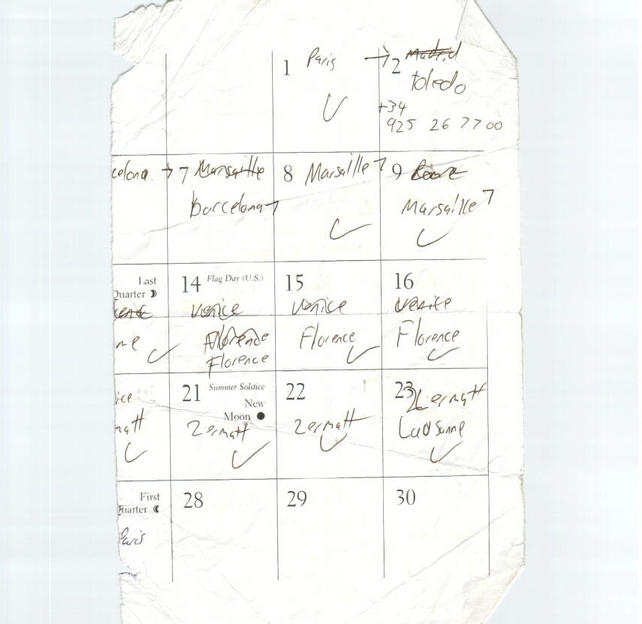 1 Paris → 2 Madrid
Toledo
+34
925 26 7700
celona → 7 Marsaille 8 Marsaille 9
Barcelona Marsaille
Last
Quarter 14 Flag Day (U.S.) 15 16
Venice Venice Venice
ne Florence Florence Florence
Florence
21 Summer Solstice 22 23 Zermatt
New
Moon
ice
matt Zermatt Zermatt Lausanne
First
Quarter 28 29 30
Paris